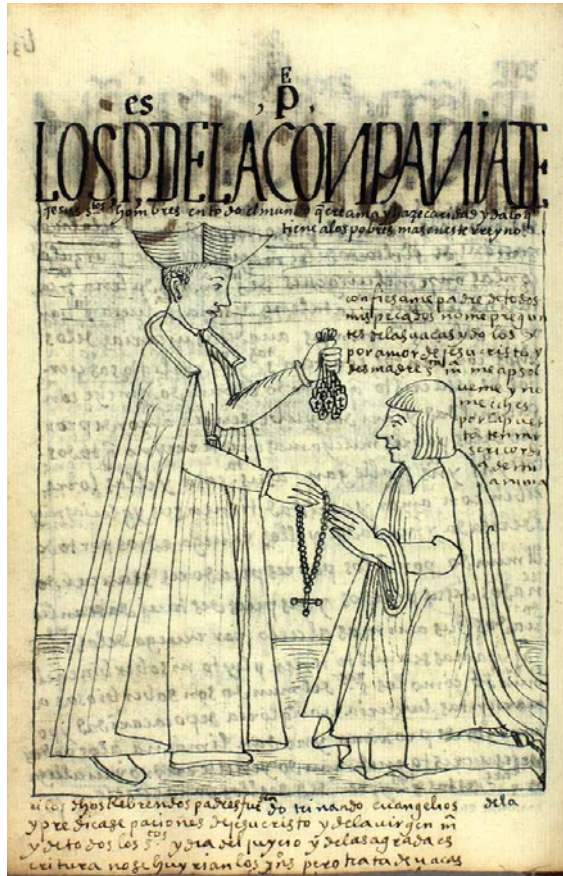 es E
, p ,
LOSPDELACONPANIATE
Jesus s.tos hombres entodo el mundo q̃ creama y haze caridad y dalo q̃
tiene alos pobres mas en este rreyno
confiesame padre detodos
mis pecados nome pregun
tes delas uacas ydolos y
por amor de jesucristo y
des madre s.ta m.a me apsol
ueme y no
me eches
por la puer
ta ten mi
sericordi
a de mi
anima
ci los dhos Rebrendos padres fue do trinando euangelios dela
y predicase paciones de jesucristo y dela uirgen m
y detodos los s.tos y dia del juycio y dela sagrada es
critura nose huyrian los yn.s pero trata de uacas